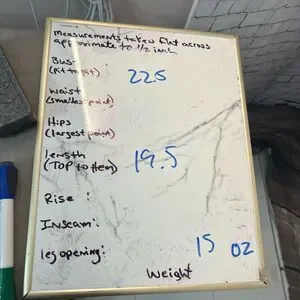 measurements taken flat across
approximate to 1/2 inch
Bust
(Pit to pit) 22.5
Waist
(smallest point)
Hips
(largest point)
Length
(TOP to Hem) 19.5
Rise :
Inseam :
leg opening :
15 OZ
Weight